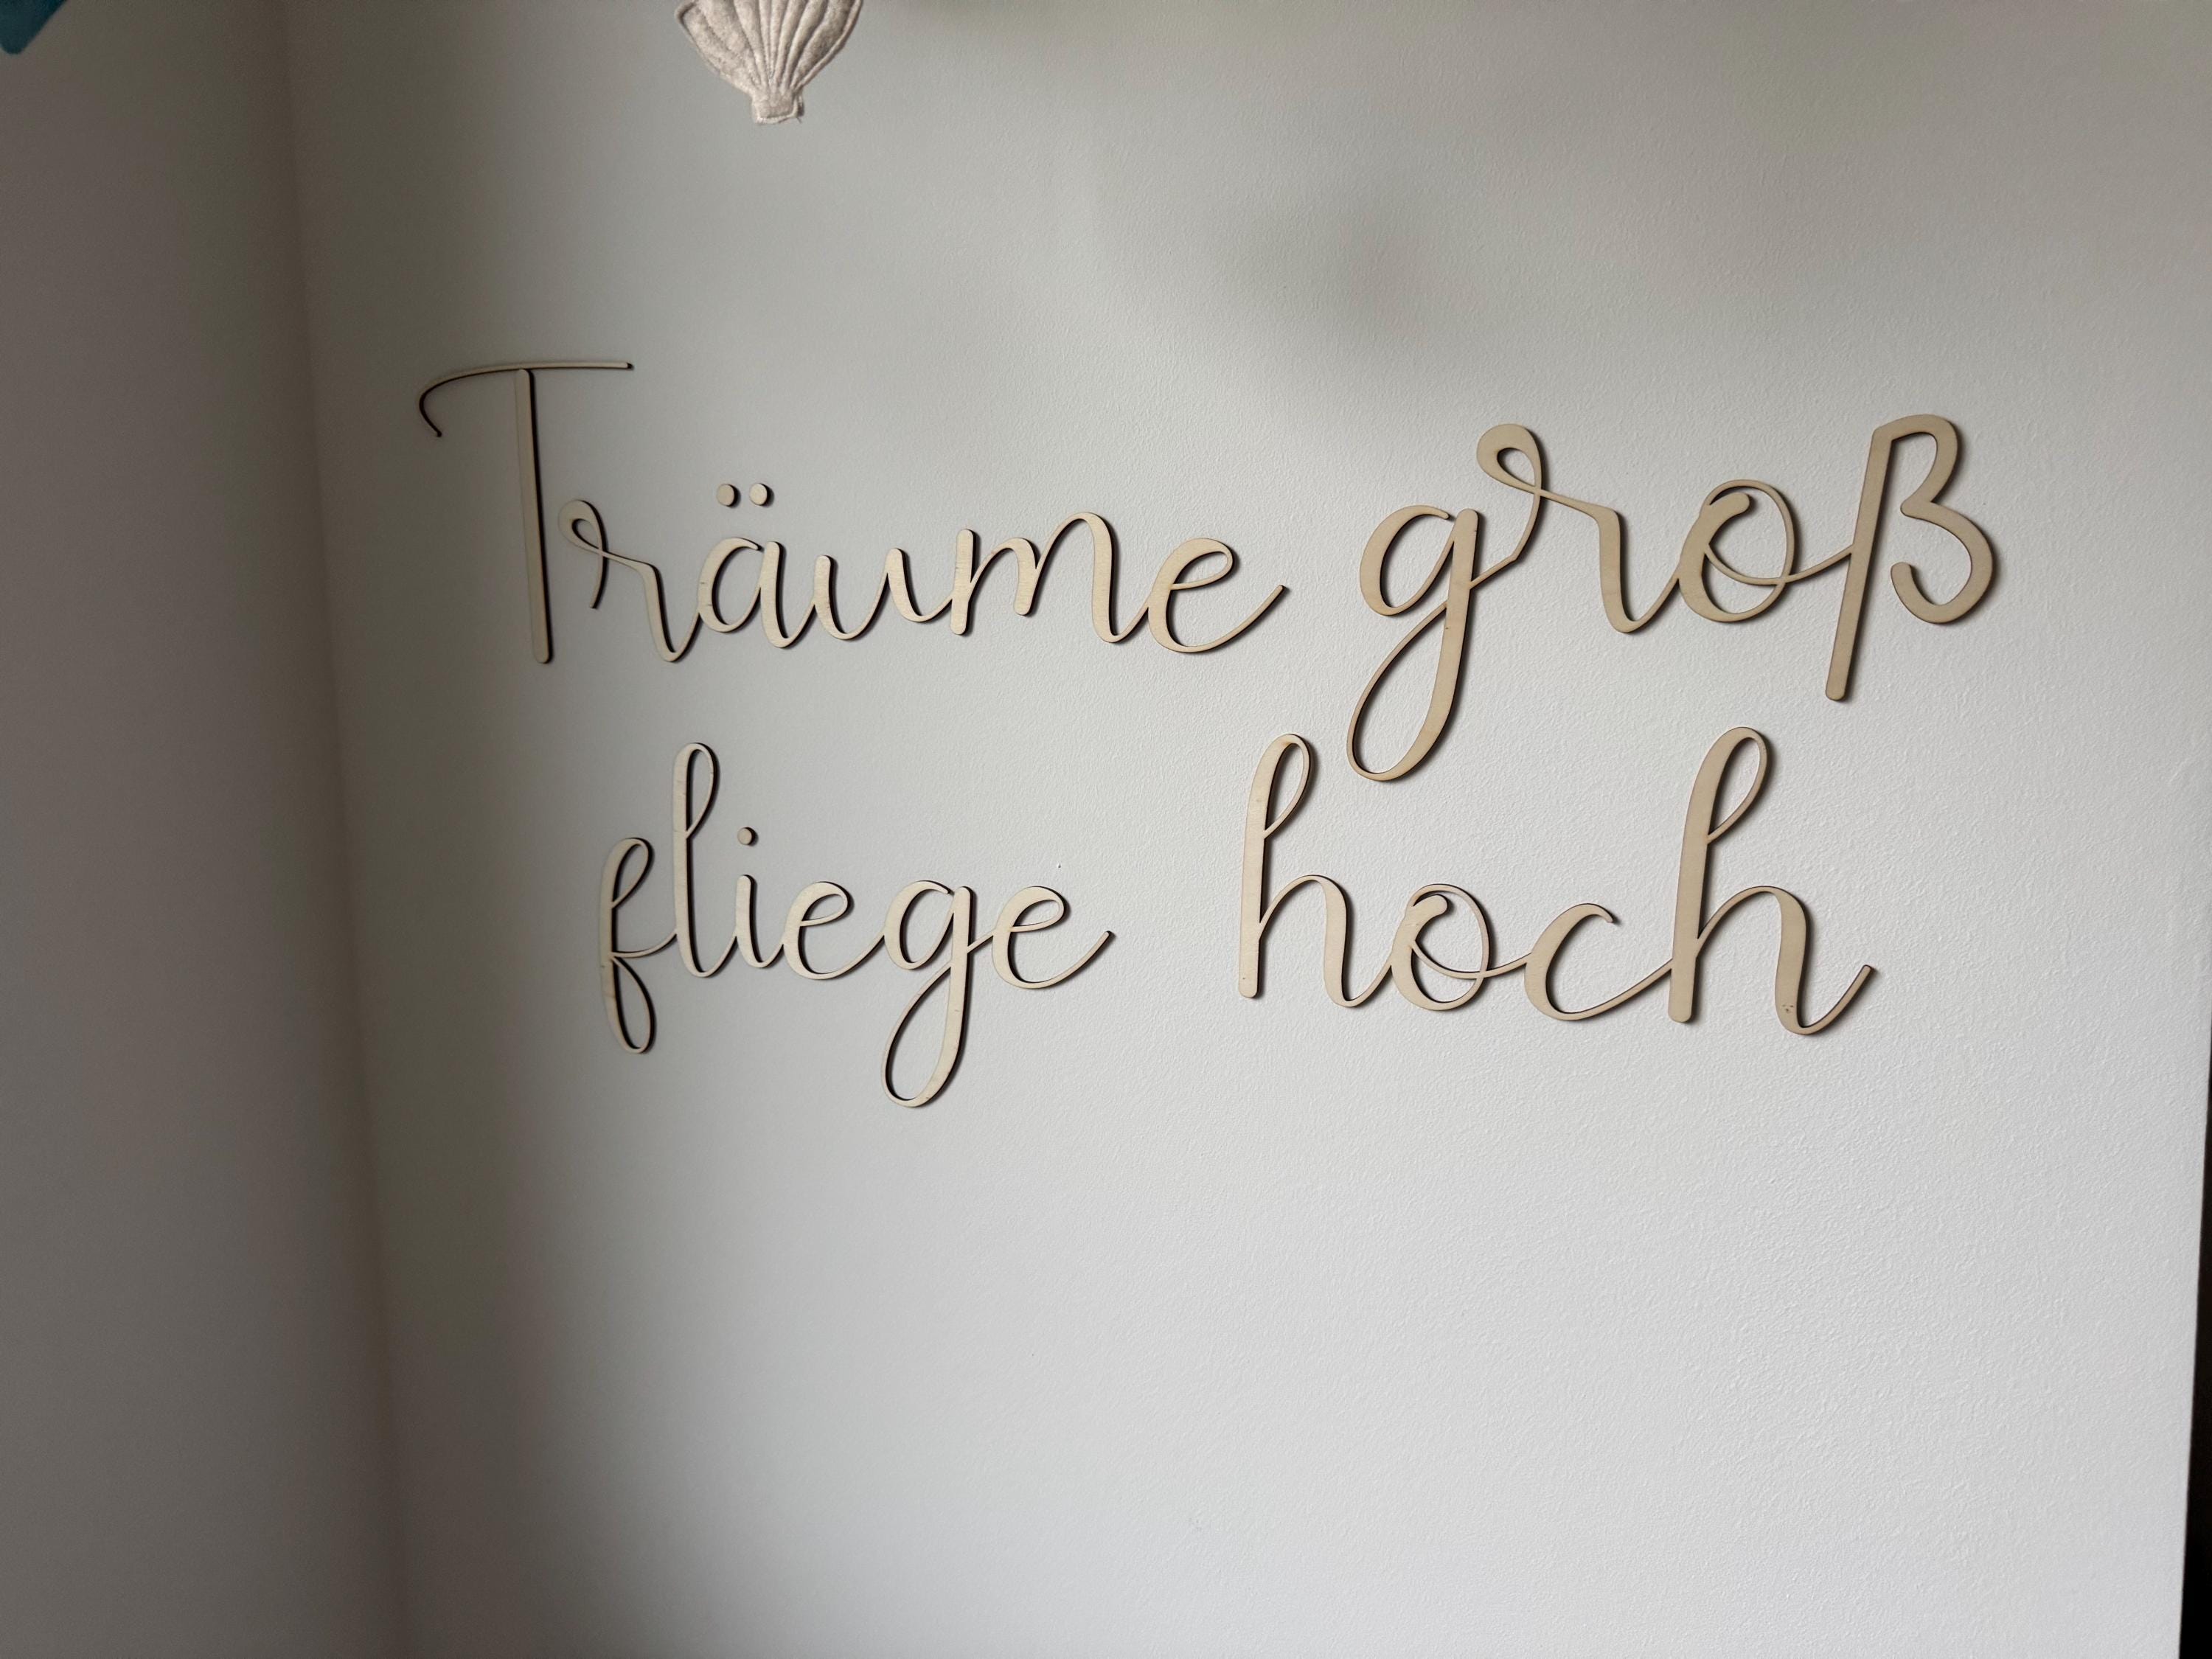 Träume groß
fliege hoch